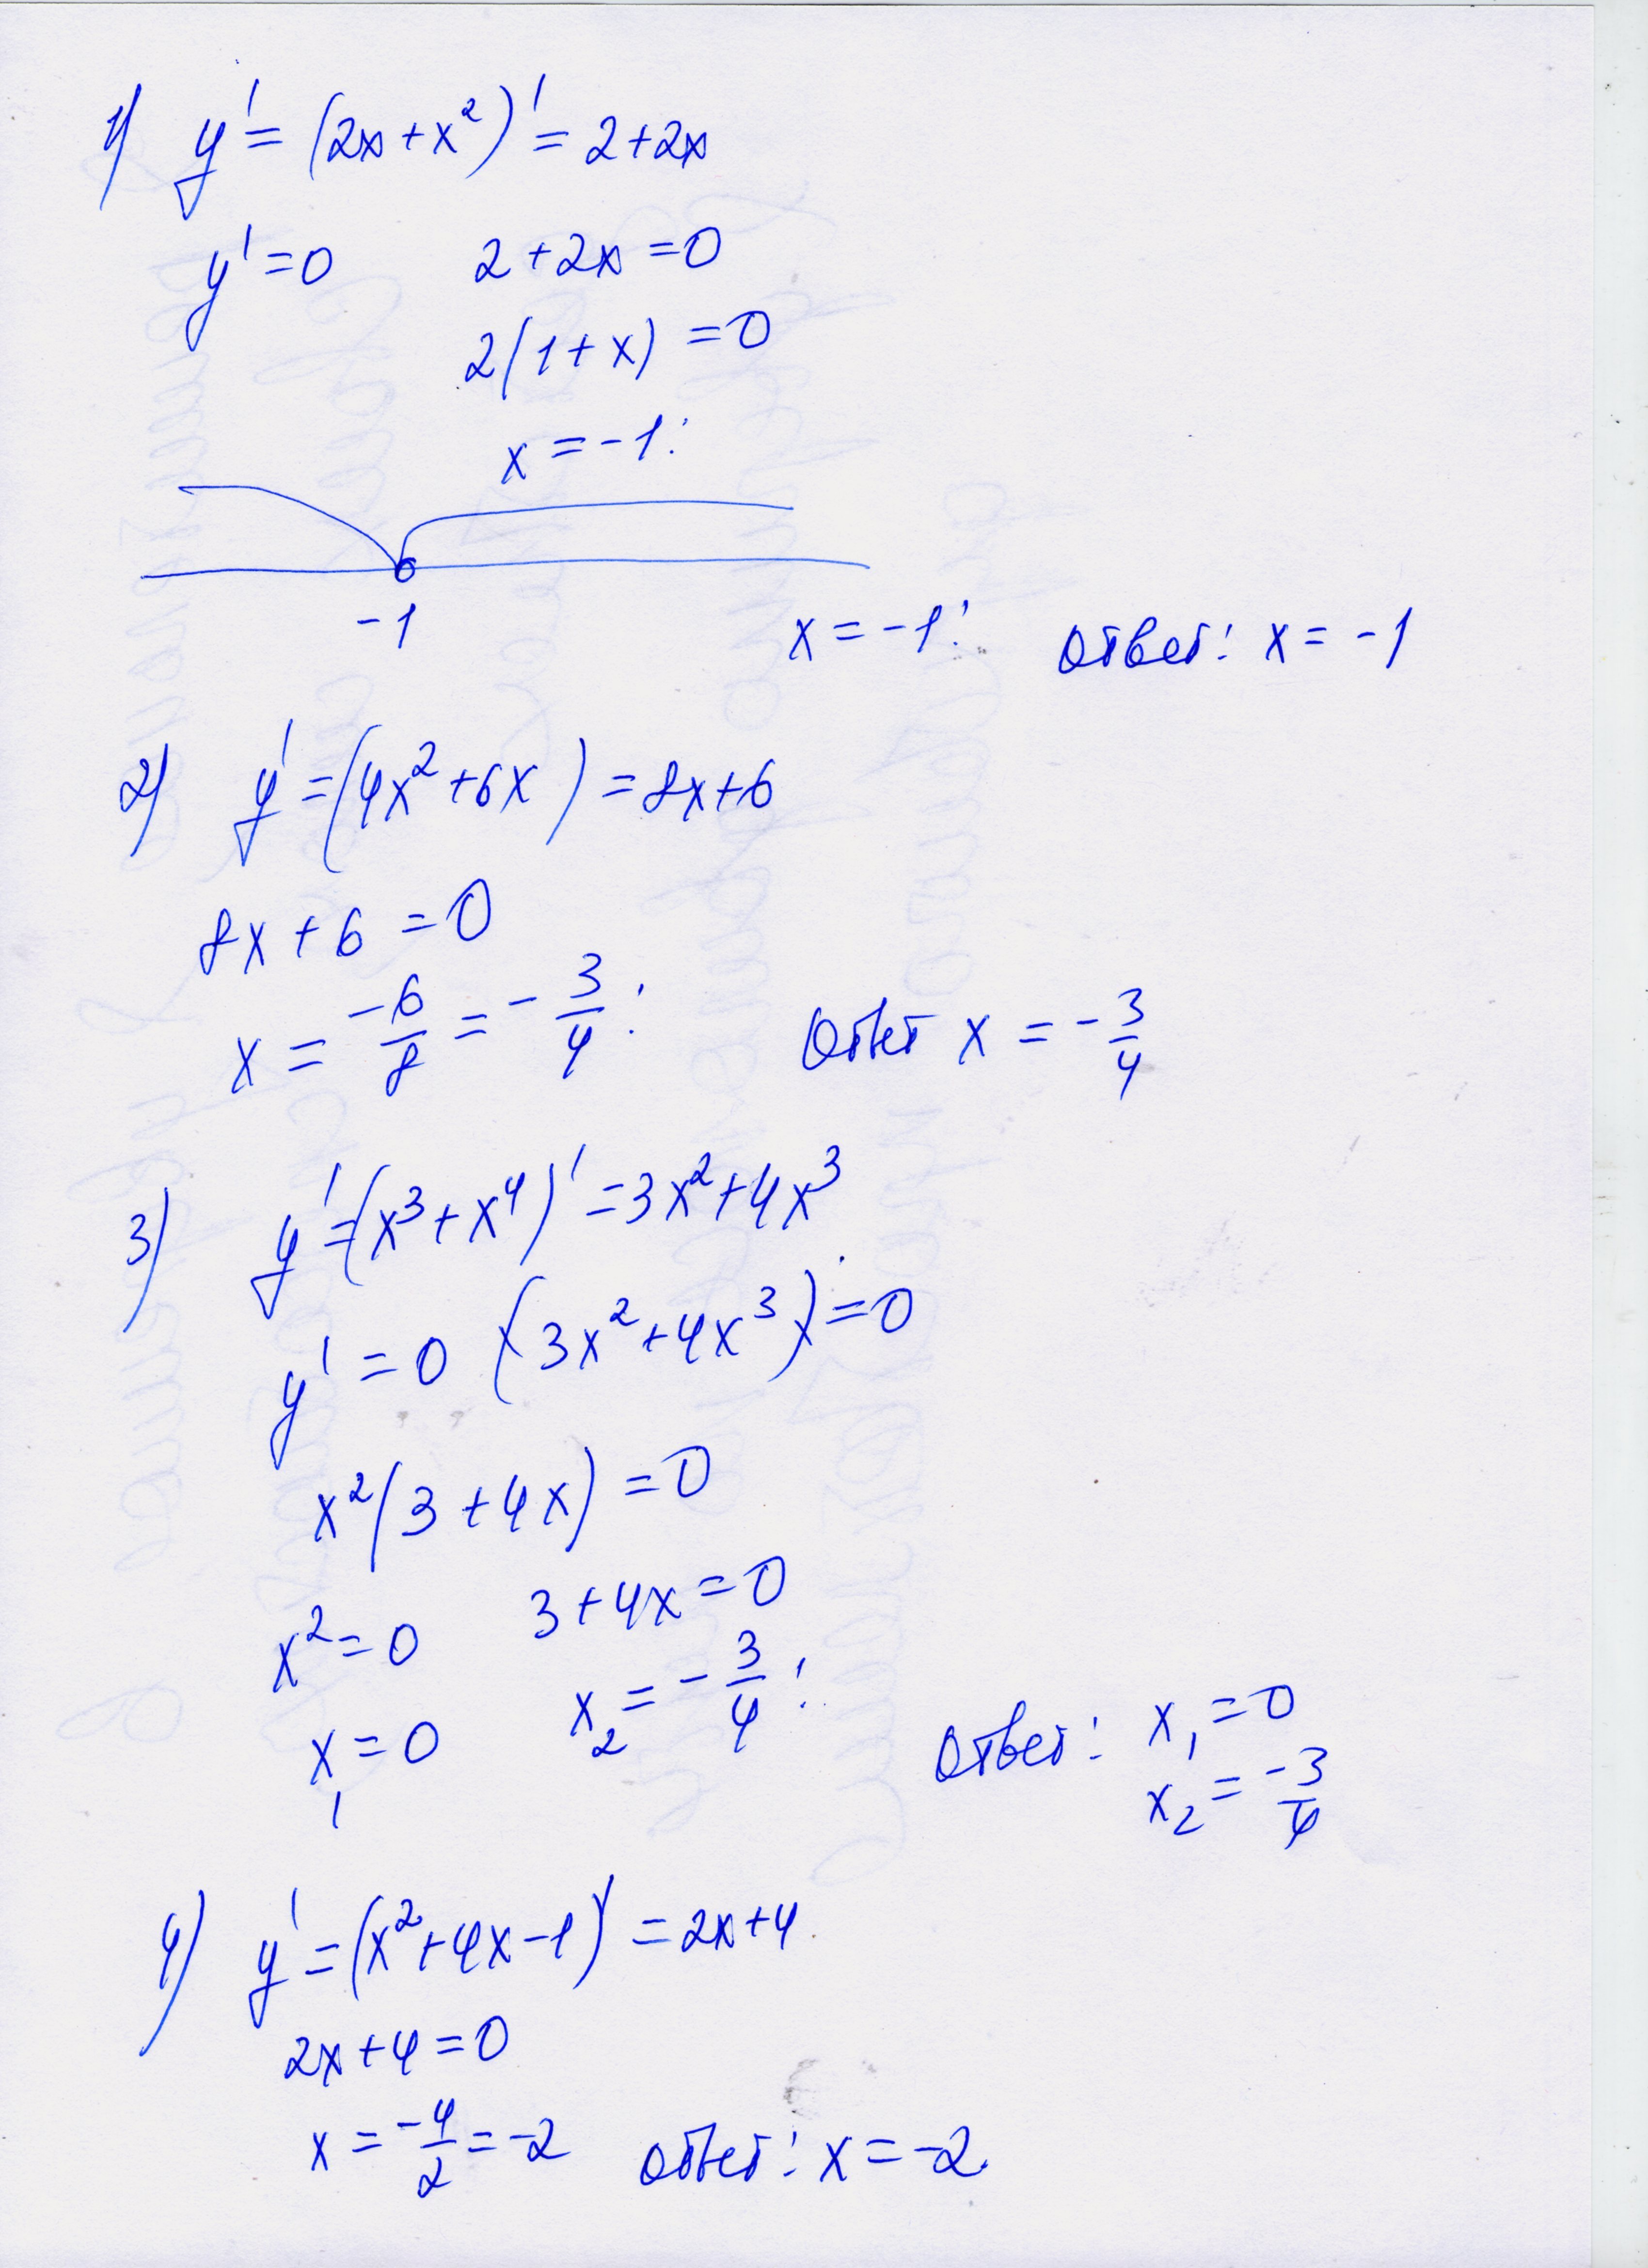 1) y' = (2x + x²)' = 2 + 2x
y' = 0 2 + 2x = 0
2(1 + x) = 0
x = -1:
-1
x = -1: Ответ: x = -1
2) y' = (4x² + 6x) = 8x + 6
8x + 6 = 0
x = -6/8 = -3/4: Ответ x = -3/4
3) y' = (x³ + x⁴)' = 3x² + 4x³
y' = 0 (3x² + 4x³) = 0
x²(3 + 4x) = 0
x² = 0 3 + 4x = 0
x₁ = 0 x₂ = -3/4:
Ответ: x₁ = 0
x₂ = -3/4
4) y' = (x² + 4x - 1)' = 2x + 4
2x + 4 = 0
x = -4/2 = -2 Ответ: x = -2